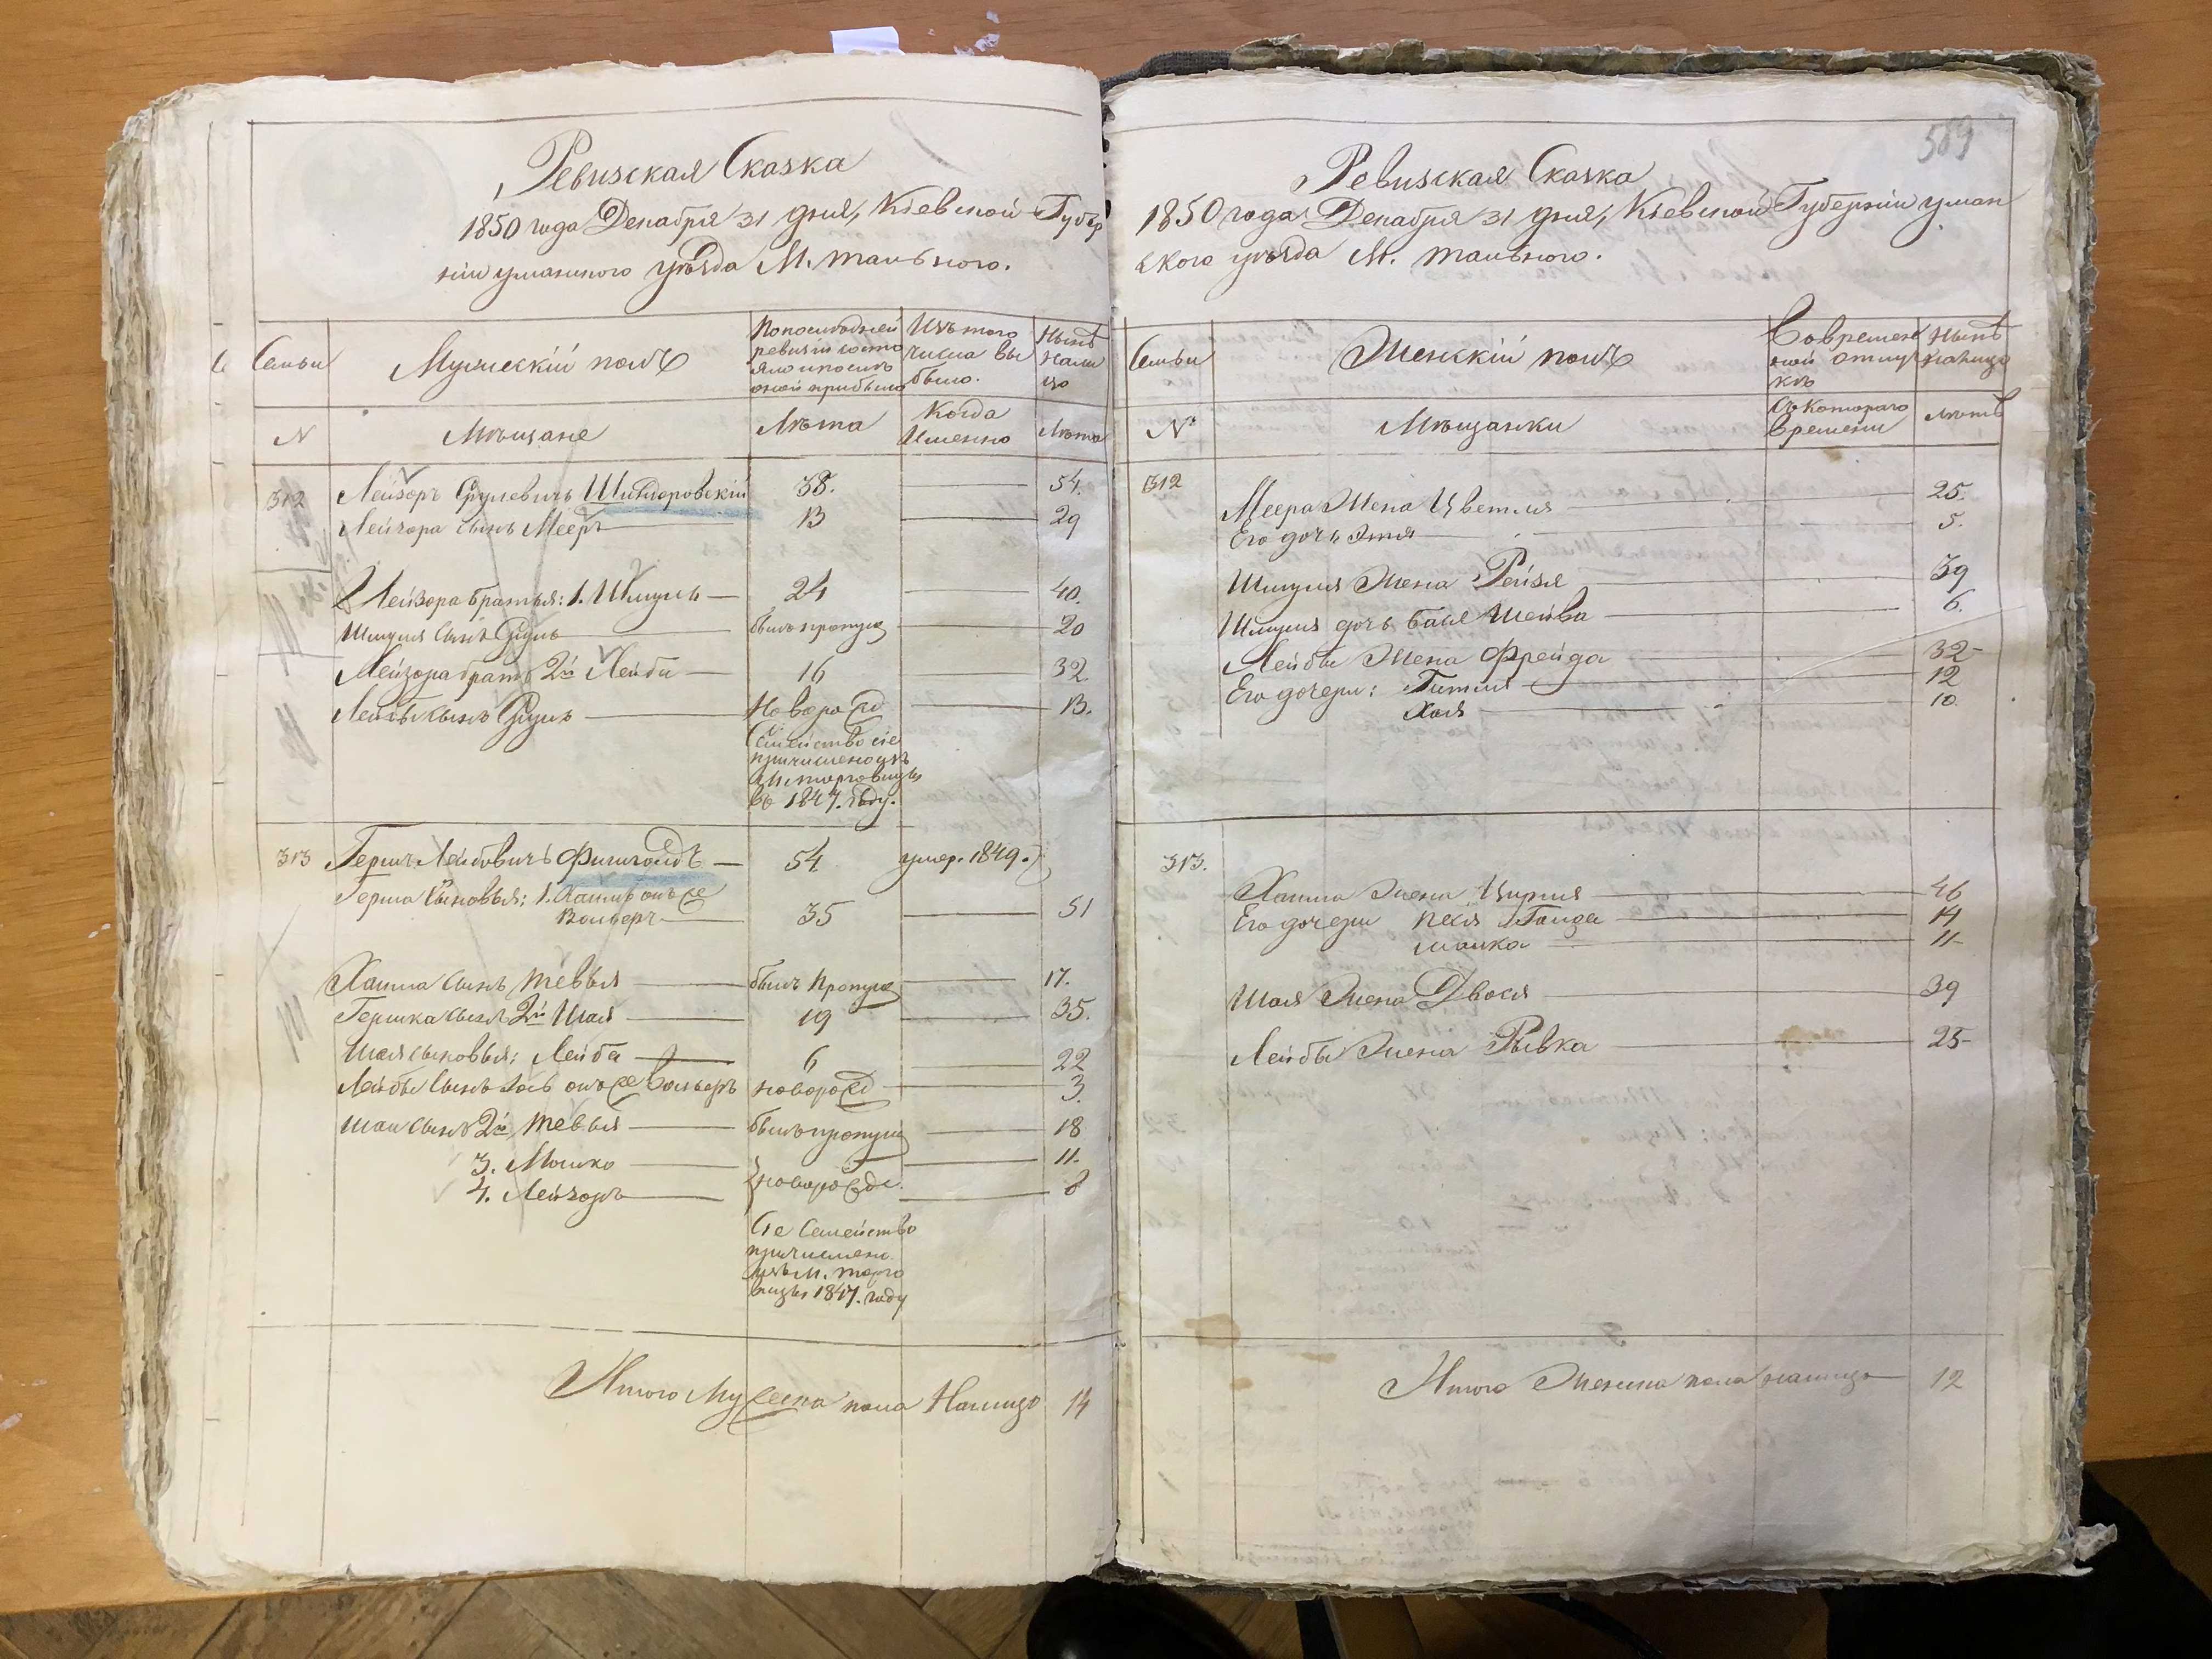 Ревизская Сказка
1850 года Декабря 31 дня, Кіевской Губер
ніи уманского уѣзда М. тального.
Семьи
Мужескій полъ
По последней
ревизіи состо
яло и после
оной прибыло
Изъ того
числа вы
было.
Нынѣ
нали
цо
N
Мѣщане
Лѣта
Когда
Именно
Лѣта
312
Лейзоръ Срулевичъ 38. 54.
Лейзора сынъ Мееръ 13 29
Лейзора братья: 1. Шмуль 24 40.
Шмуля сынъ Сруль былъ пропущ 20
Лейзора братъ 2й Лейба 16 32
Лейбы сынъ Сруль Новорожд 13.
Семейство сіе
причислено изъ
М. торговицы
въ 1847. году.
313 Герш Лейбовичъ Фишгойдъ 54 умер. 1849.
Герша сыновья: 1. Хаимъ онъ же
Вольверъ 35 51
Хаима сынъ тевья былъ пропущ 17.
Гершка сынъ 2й Шая 19 35.
Шая сыновья: Лейба 6 22
Лейбы сынъ Іось онъ же Вольверъ новорожд 3.
Шаи сынъ 2й тевья былъ пропущ 18
3. Мошко 11.
4. Лейзоръ новорожде. 8
Сіе Семейство
причислено
изъ М. торго
вицы 1847. году
Итого Мужеска пола Налицо 14
589
Ревизская Сказка
1850 года Декабря 31 дня, Кіевской Губерніи уман
ского уѣзда М. тального.
Семьи
Женскій полъ
Во времен
ной отлуч
кѣ
Нынѣ
налицо
N
Мѣщанки
Съ котораго
времени
Лѣтъ
312
Меера Жена Цветля 25.
Его дочь Этя 5.
Шмуля Жена Рейзя 39
Шмуля дочь Бася Шейва 6.
Лейбы Жена Фрейда 32
Его дочери: Гитля 12
Хая 10
313.
Хаима Жена Цирля 46
Его дочери песя Гольда 14
малка 11
Шая Жена Двося 39
Лейбы Жена Рывка 25
Итого Женска пола налицо 12